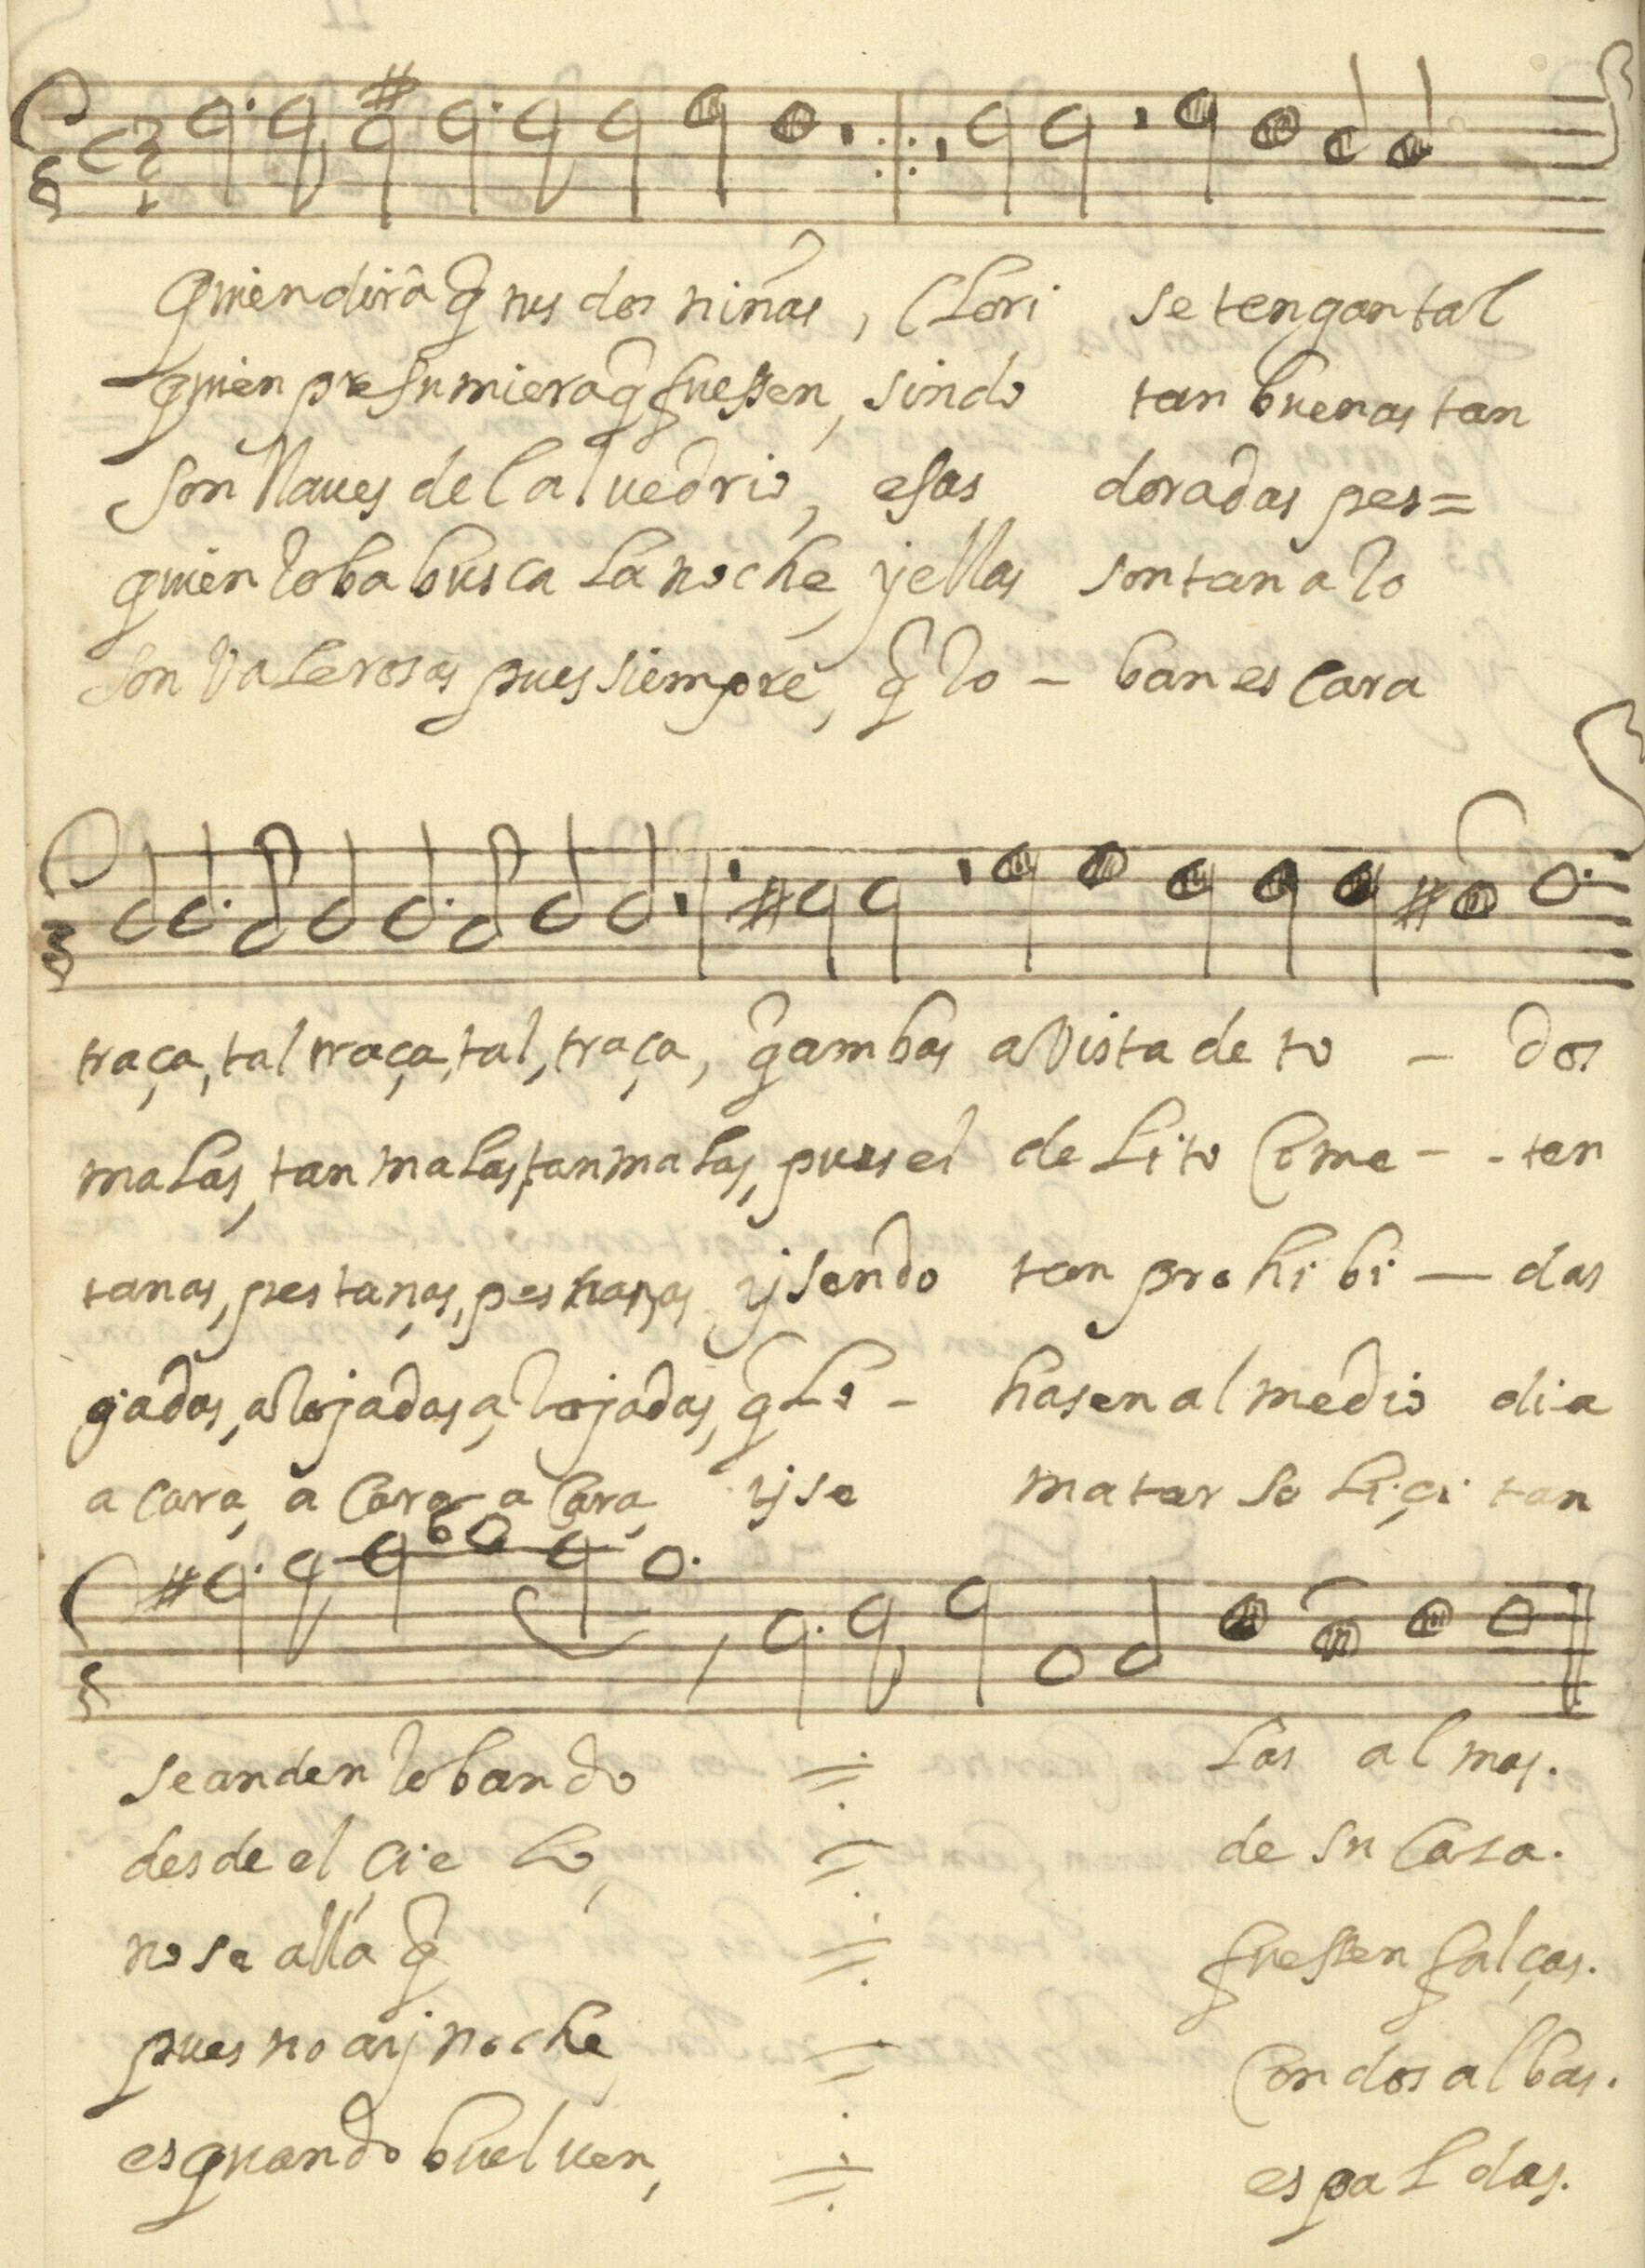 quien dirâ q̂ tus dos niñas, Clori se tengan tal
quien presumiera q̂ fuessen, sindo tan buenas tan
Son llaues del aluedrio, esas doradas pes=
quien roba busca la noche, y ellas son tan a ro
Son valerosas pues siempre, q̂ ro – ban es cara
traça, tal traça, tal, traça, q̂ ambas a vista de to – dos
malas, tan malas, tan malas, pues el delito come - - ten
tanas, pestanas, pestanas, y sendo tan prohibi — das
gadas, arojadas, arojadas, q̂ lo - hasen al medio dia
a cara, a cara a cara, y se matar soliçitan
se anden robando las almas.
desde el çielo, de su casa.
no se alla q̂ fuessen falças.
pues no ay noche, con dos albas.
es quando bueluen, espaldas.